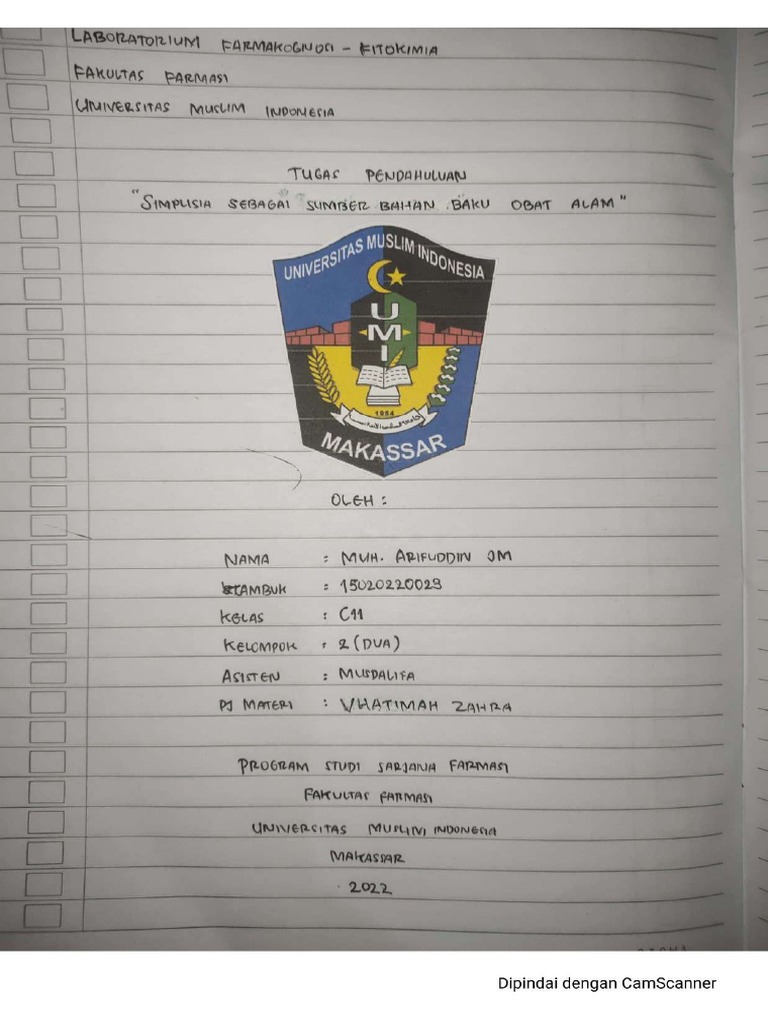 LABORATORIUM FARMAKOGNOSI - FITOKIMIA
FAKULTAS FARMASI
UNIVERSITAS MUSLIM INDONESIA
TUGAS PENDAHULUAN
"SIMPLISIA SEBAGAI SUMBER BAHAN BAKU OBAT ALAM"
UNIVERSITAS MUSLIM INDONESIA
UMI
1954
MAKASSAR
OLEH :
NAMA : MUH. ARIFUDDIN JM
STAMBUK : 15020220029
KELAS : C11
KELOMPOK : 2 (DUA)
ASISTEN : MUSDALIFA
PJ MATERI : KHATIMAH ZAHRA
PROGRAM STUDI SARJANA FARMASI
FAKULTAS FARMASI
UNIVERSITAS MUSLIM INDONESIA
MAKASSAR
2022
Dipindai dengan CamScanner